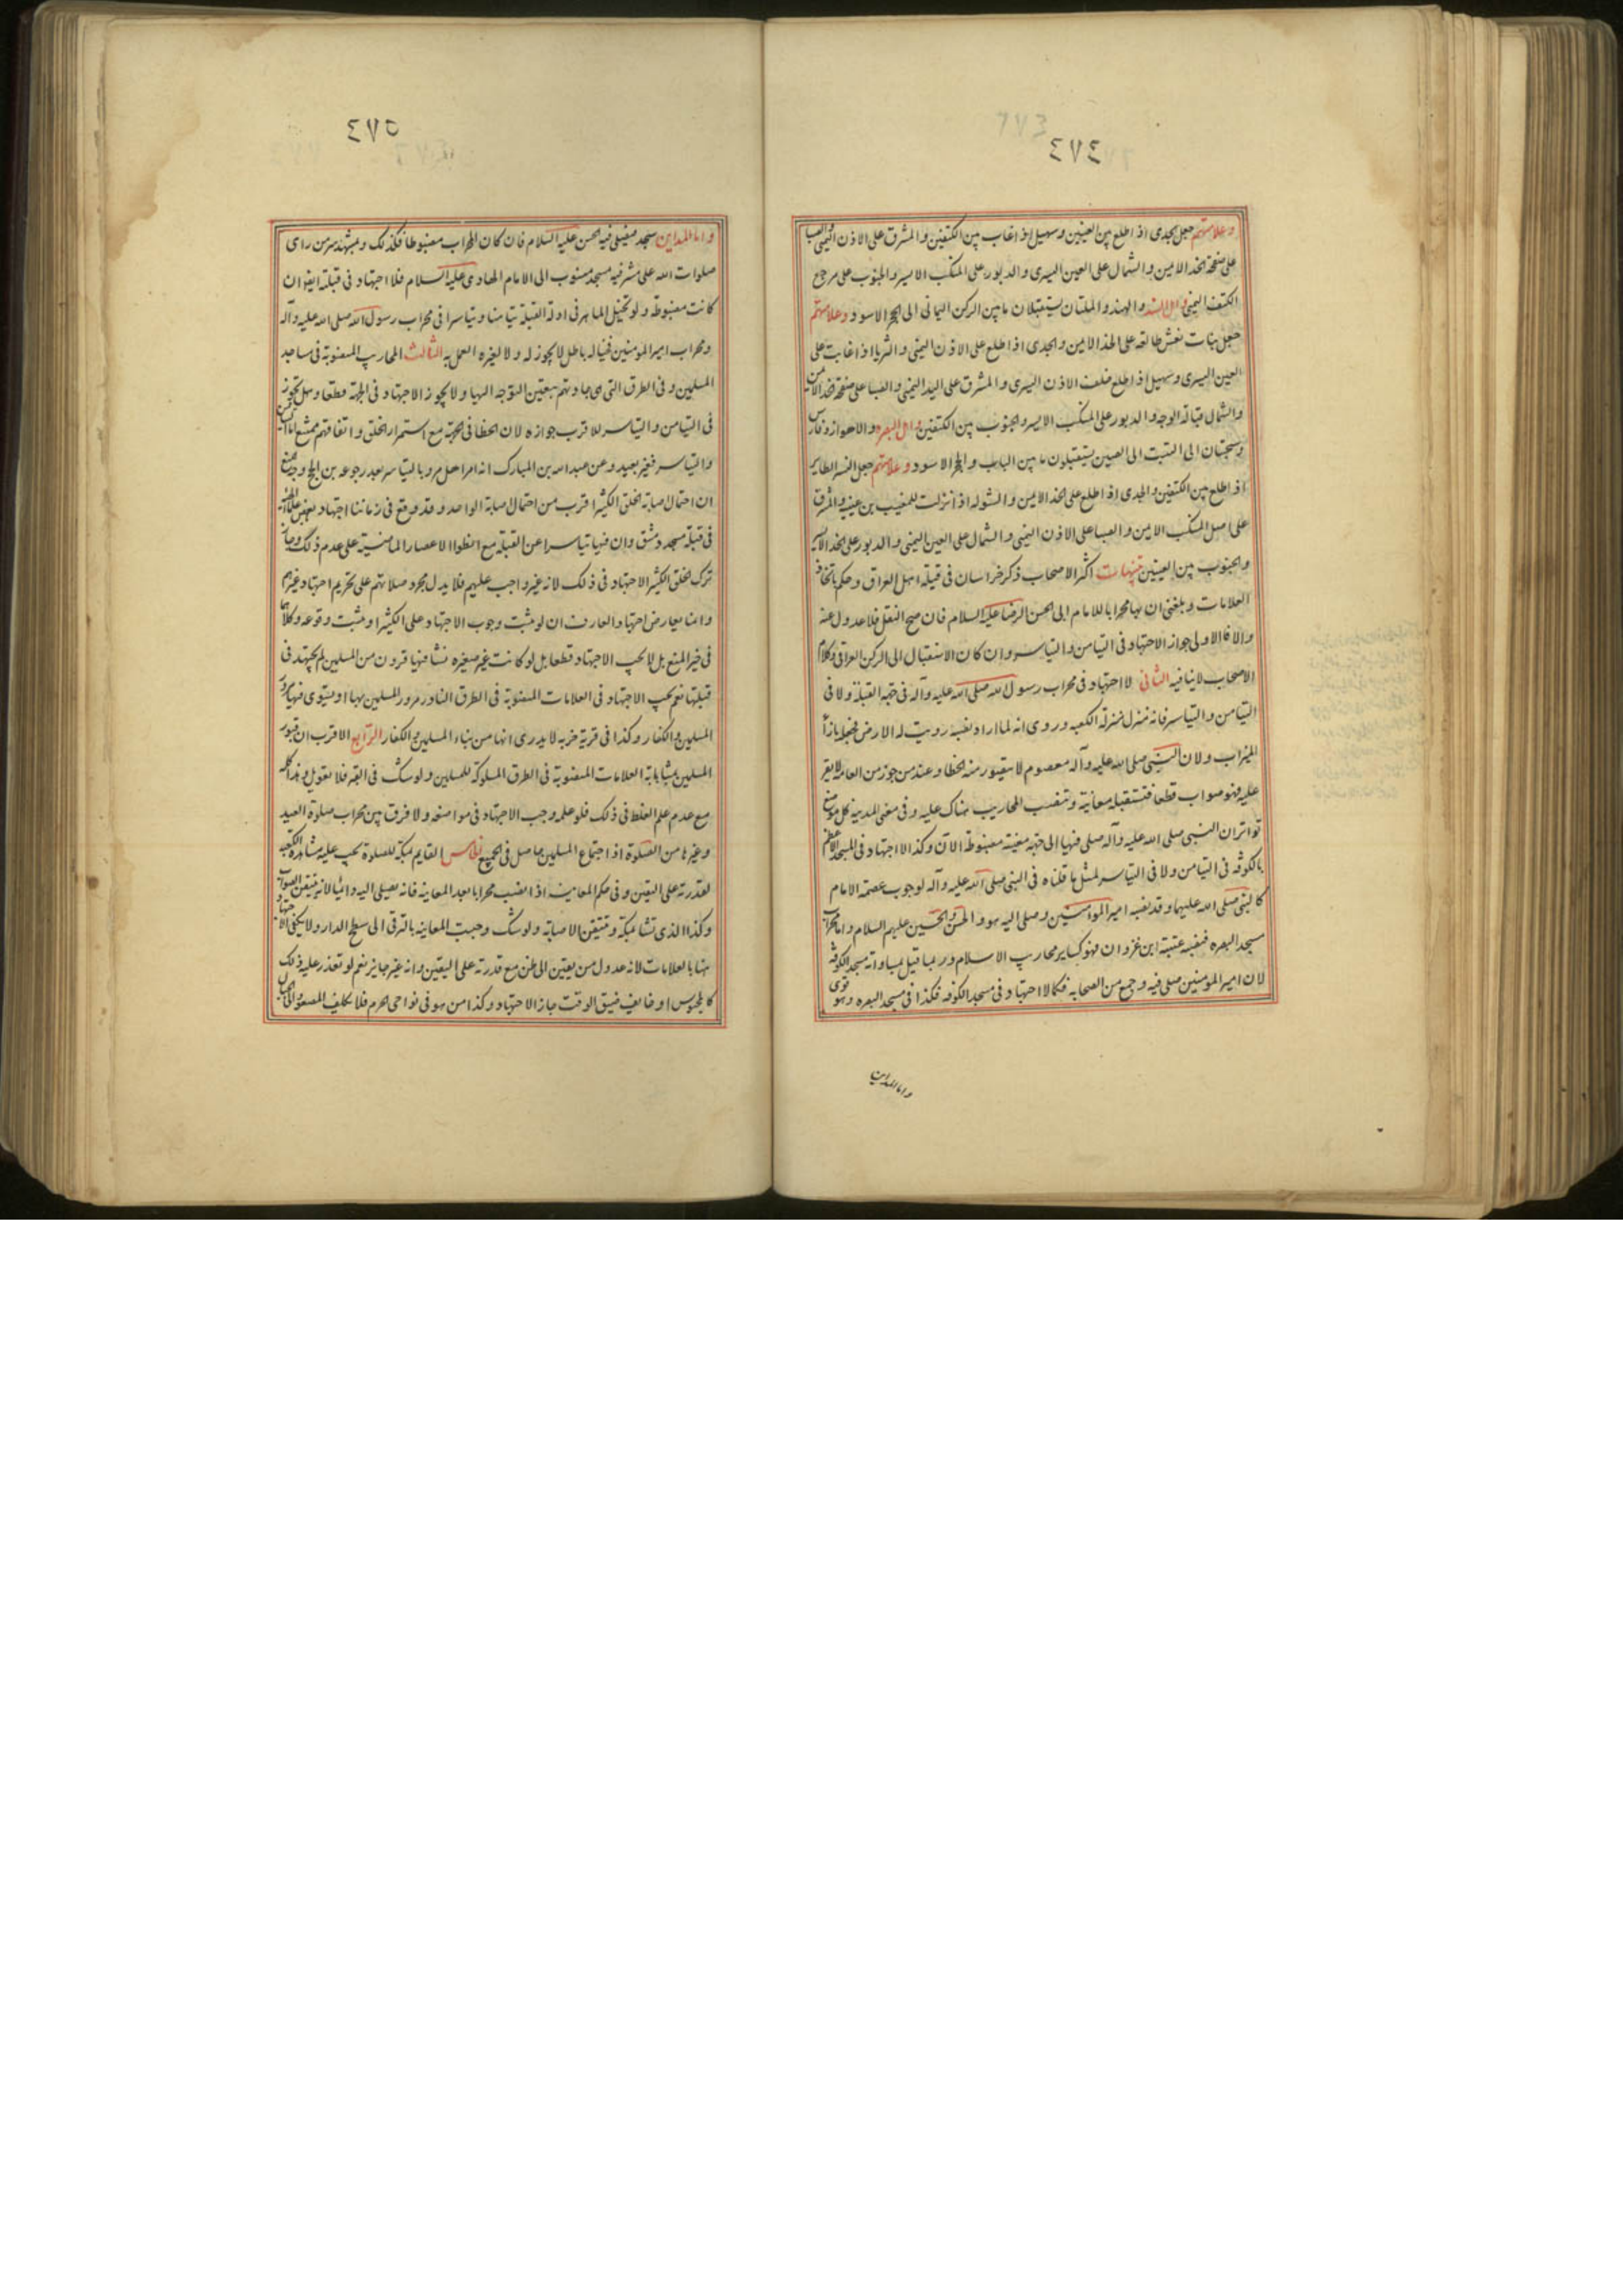 ٤٧٤
وعلامتهم جعل الجدى اذا طلع بين العينين وسهيل اذا غاب بين الكتفين والمشرق على الاذن اليمنى والصبا
على صفحة الخد الايمن والشمال على العين اليسرى والدبور على المنكب الايسر والجنوب على مرجع
الكتف اليمنى واهل السند والهند والملتان يستقبلان ما بين الركن اليمانى الى الحجر الاسود وعلامتهم
جعل بنات نعش طالعة على الخد الايمن والجدى اذا طلع على الاذن اليمنى والثريا اذا غابت على
العين اليسرى وسهيل اذا طلع خلف الاذن اليسرى والمشرق على اليد اليمنى والصبا على صفحة الخد الايمن
والشمال قبالة الوجه والدبور على المنكب الايسر والجنوب بين الكتفين واهل البصره والاهواز وفارس
وسجستان الى التبت الى الصين يستقبلون ما بين الباب والحجر الاسود وعلامتهم جعل النسر الطاير
اذا طلع بين الكتفين والجدى اذا طلع على الخد الايمن والشوله اذا نزلت للمغيب بين عينيه والمشرق
على اصل المنكب الايمن والصبا على الاذن اليمنى والشمال على العين اليمنى والدبور على الخد الايسر
والجنوب بين العينين تنبيهات اكثر الاصحاب ذكر خراسان فى قبلة اهل العراق وحكم باتحاد
العلامات وبلغنى ان بها محرابا للامام ابى الحسن الرضا عليه السلام فان صح النقل فلا عدول عنه
والا فالاولى جواز الاجتهاد فى التيامن والتياسر وان كان الاستقبال الى الركن العراقى وكلام
الاصحاب لا ينافيه الثانى لا اجتهاد فى محراب رسول الله صلى الله عليه وآله فى جهة القبلة ولا فى
التيامن والتياسر فانه منزل منزلة الكعبه وروى انه لما اراد نصبه زويت له الارض فجعله بازاء
الميزاب ولان النبى صلى الله عليه وآله معصوم لا يتصور منه الخطا وعند من جوزه من العامه لا يقر
عليه فهو صواب قطعا فتستقبله معاينة وتنصب المحاريب هناك عليه وفى معنى المدينه كل موضع
تواتر ان النبى صلى الله عليه وآله صلى فيها الى جهة معينة مضبوطة الآن وكذا لا اجتهاد فى المسجد الاعظم
بالكوفه فى التيامن ولا فى التياسر لمثل ما قلناه فى النبى صلى الله عليه وآله لوجوب عصمة الامام
كالنبى صلى الله عليهما وقد نصبه امير المؤمنين وصلى اليه هو والحسن والحسين عليهم السلام واما محراب
مسجد البصره فنصبه عتبة ابن غزوان فهو كساير محاريب الاسلام وربما قيل بمساواته مسجد الكوفه
لان امير المؤمنين صلى فيه وجمع من الصحابه فكما لا اجتهاد فى مسجد الكوفه فكذا فى مسجد البصره وهو قوى
واما المداين
٤٧٥
واما المداين مسجد فيصلى فيه الحسن عليه السلام فان كان المحراب مضبوطا فكذلك وبمشهد سر من راى
صلوات الله على مشرفيه مسجد منسوب الى الامام الهادى عليه السلام فلا اجتهاد فى قبلته ايضا ان
كانت مضبوطة ولو تخيل الماهر فى ادلة القبلة تيامنا وتياسرا فى محراب رسول الله صلى الله عليه وآله
ومحراب امير المومنين فخياله باطل لا يجوز له ولا لغيره العمل به الثالث المحاريب المنصوبة فى مساجد
المسلمين وفى الطرق التى هى جادتهم يتعين التوجه اليها ولا يجوز الاجتهاد فى الجهة قطعا وهل يجوز
فى التيامن والتياسر الاقرب جوازه لان الخطا فى الجهة مع استمرار الخلق واتفاقهم ممتنع اما التيامن
والتياسر فغير بعيد وعن عبد الله بن المبارك انه امر اهل مرو بالتياسر بعد رجوعه من الحج ووجه المنع
ان احتمال اصابة الخلق الكثير اقرب من احتمال اصابة الواحد وقد وقع فى زماننا اجتهاد بعض علماء العامه
فى قبلة مسجد دمشق وان فيها تياسرا عن القبلة مع انطوا الاعصار الماضية على عدم ذلك وجاز
ترك الخلق الكثير الاجتهاد فى ذلك لانه غير واجب عليهم فلا يدل مجرد صلاتهم على تحريم اجتهاد غيرهم
وانما يعارض اجتهاد العارف ان لو ثبت وجوب الاجتهاد على الكثير او ثبت وقوعه وكلاهما
فى خير المنع بل لا يجب الاجتهاد قطعا بل لو كانت غير صغيره نشا فيها قرون من المسلمين لم يجتهد فى
قبلتها نعم يجب الاجتهاد فى العلامات المنصوبة فى الطرق النادر مرور المسلمين بها او يستوى فيها مرور
المسلمين والكفار وكذا فى قرية خربه لا يدرى انها من بناء المسلمين والكفار الرابع الاقرب ان قبور
المسلمين بمثابة العلامات المنصوبة فى الطرق المسلوكه للمسلمين ولو شك فى القبر فلا تعويل وهذا كله
مع عدم علم الغلط فى ذلك فلو علم وجب الاجتهاد فى مواضعه ولا فرق بين محراب صلوة العيد
وغيرها من الصلوة اذا اجتماع المسلمين حاصل فى الجميع الخامس القايم بمكة للصلوة يجب عليه مشاهدة الكعبه
لقدرته على اليقين وفى حكم المعاينه اذا نصب محرابا بعد المعاينه فانه يصلى اليه دائما لانه تيقن الصواب
وكذا الذى نشا بمكة وتيقن الاصابة ولو شك وجبت المعاينه بالترقى الى سطح الدار ولا يكفى الاجتهاد
هنا بالعلامات لانه عدول من يقين الى ظن مع قدرته على اليقين وانه غير جايز نعم لو تعذر عليه ذلك
كالمحبوس او خايف ضيق الوقت جاز الاجتهاد وكذا من هو فى نواحى الحرم فلا يكلف الصعود الى الجبال